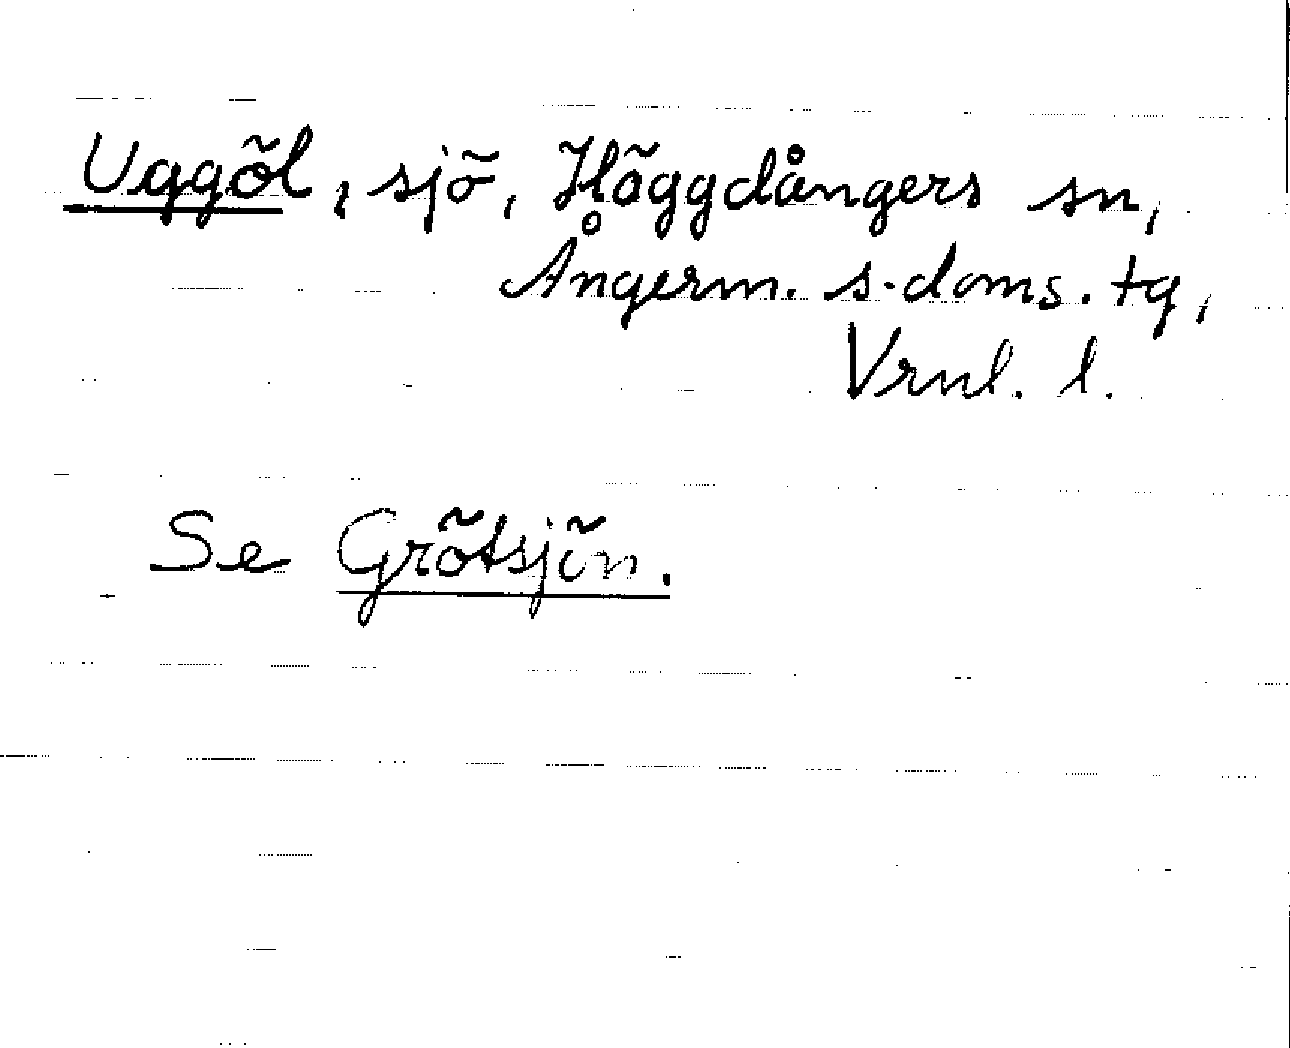 Uggöl, sjö, Höggdångers sn,
Ångerm. s. doms. tg,
Vrnl. l.
Se Grötsjön.